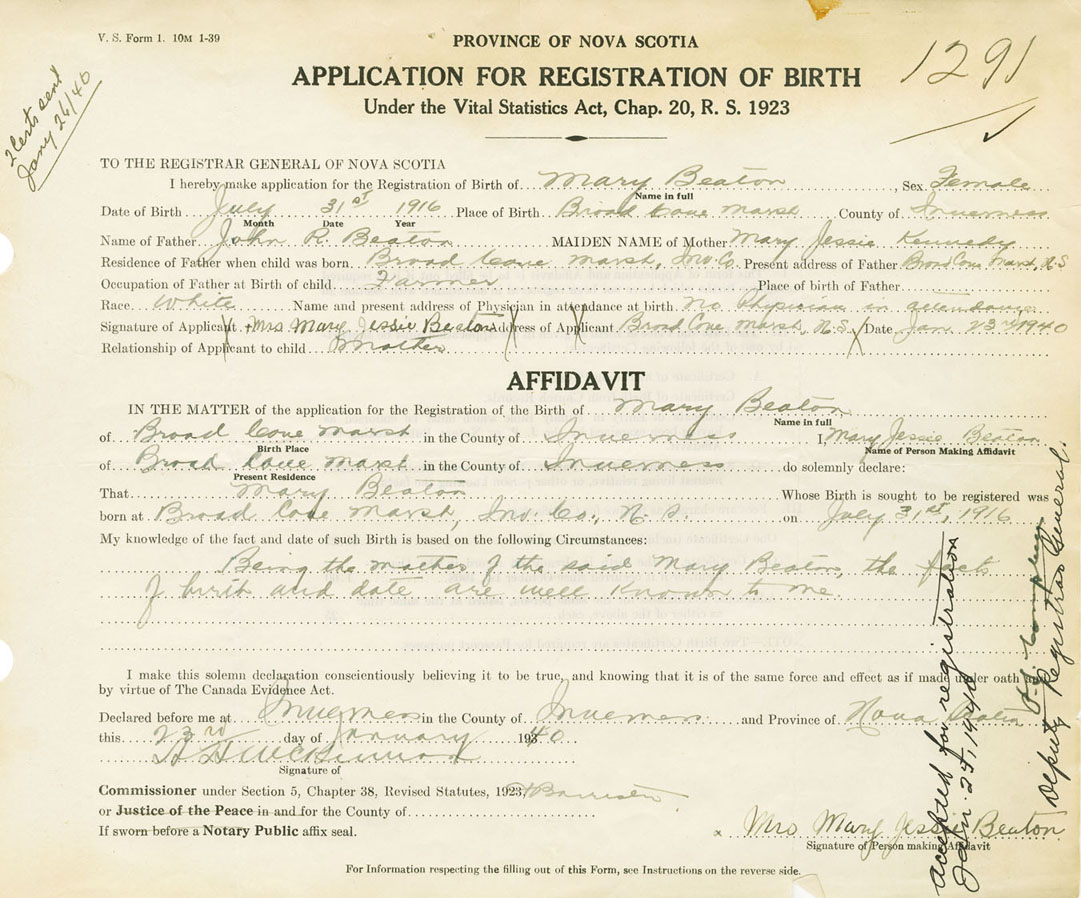 V. S. Form 1. 10M 1-39
PROVINCE OF NOVA SCOTIA
1291
APPLICATION FOR REGISTRATION OF BIRTH
Under the Vital Statistics Act, Chap. 20, R. S. 1923
2 Certs sent
Jany 26/40
TO THE REGISTRAR GENERAL OF NOVA SCOTIA
I hereby make application for the Registration of Birth of Mary Beaton, Sex Female
Name in full
Date of Birth July 31st 1916 Place of Birth Broad Cove Marsh County of Inverness
Month Date Year
Name of Father John R. Beaton MAIDEN NAME of Mother Mary Jessie Kennedy
Residence of Father when child was born Broad Cove Marsh, Inv. Co. Present address of Father Broad Cove Marsh, N.S
Occupation of Father at Birth of child Farmer Place of birth of Father
Race White Name and present address of Physician in attendance at birth no Physician in attendance
Signature of Applicant Mrs Mary Jessie Beaton Address of Applicant Broad Cove Marsh, N.S Date Jan 23rd 1940
Relationship of Applicant to child Mother
AFFIDAVIT
IN THE MATTER of the application for the Registration of the Birth of Mary Beaton
Name in full
of Broad Cove Marsh in the County of Inverness I, Mary Jessie Beaton
Birth Place Name of Person Making Affidavit
of Broad Cove Marsh in the County of Inverness do solemnly declare:
Present Residence
That Mary Beaton Whose Birth is sought to be registered was
born at Broad Cove Marsh, Inv. Co., N. S. on July 31st, 1916
My knowledge of the fact and date of such Birth is based on the following Circumstances:
Being the mother of the said Mary Beaton, the facts
of birth and date are well known to me.
I make this solemn declaration conscientiously believing it to be true, and knowing that it is of the same force and effect as if made under oath and
by virtue of The Canada Evidence Act.
Declared before me at Inverness in the County of Inverness and Province of Nova Scotia
this 23rd day of January 1940
Signature of
Commissioner under Section 5, Chapter 38, Revised Statutes, 1923, Barrister
or Justice of the Peace in and for the County of
If sworn before a Notary Public affix seal.
x Mrs Mary Jessie Beaton
Signature of Person making Affidavit
For Information respecting the filling out of this Form, see Instructions on the reverse side.
accepted for registration
Jan. 25, 1940
Deputy Registrar General.